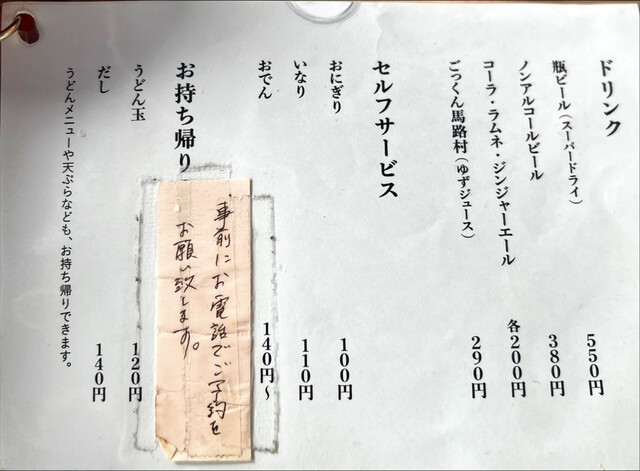 ドリンク
瓶ビール（スーパードライ） 550円
ノンアルコールビール 380円
コーラ・ラムネ・ジンジャーエール 各200円
ごっくん馬路村（ゆずジュース） 290円
セルフサービス
おにぎり 100円
いなり 110円
おでん 140円〜
お持ち帰り
事前にお電話でご予約を
お願い致します。
うどん玉 120円
だし 140円
うどんメニューや天ぷらなども、お持ち帰りできます。